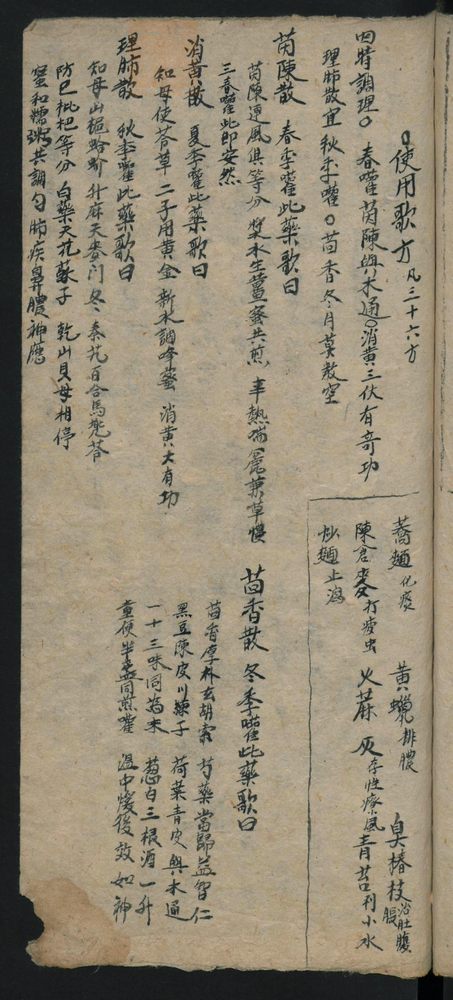 使用歌方 凡三十六方
四時調理。春嚾茵陳與木通。消黃三伏有奇功
理肺散宜秋季嚾。茴香冬月莫教空
茵陳散 春季嚾此藥歌曰
茵陳連風俱等分 漿水生薑蜜共煎 熱喘麄兼草慢
三春嚾此即安然
消黃散 夏季嚾此藥歌曰
知母使芩草 二子用黃金 新水調蜂蜜 消黃大有功
理肺散 秋季嚾此藥歌曰
知母山梔蛤蚧升麻天麥門冬秦艽百合馬兜苓
防已枇杷等分 白藥天花蘇子 乾山貝母相停
蜜和糯粥共調勻 肺疾鼻膿神應
蕎麵化 黃蠟排膿 臭椿枝治肚腹脹
陳倉麥打疫虫 火麻灰存性 風 青苔利小水
炒麵止瀉
茴香散 冬季嚾此藥歌曰
茴香厚朴玄胡索 芍藥當歸益智仁
黑豆陳皮川楝子 荷葉青皮與木通
一十三味同為末 葱白三根酒一升
童便半盞同煎嚾 溫中煖後效如神